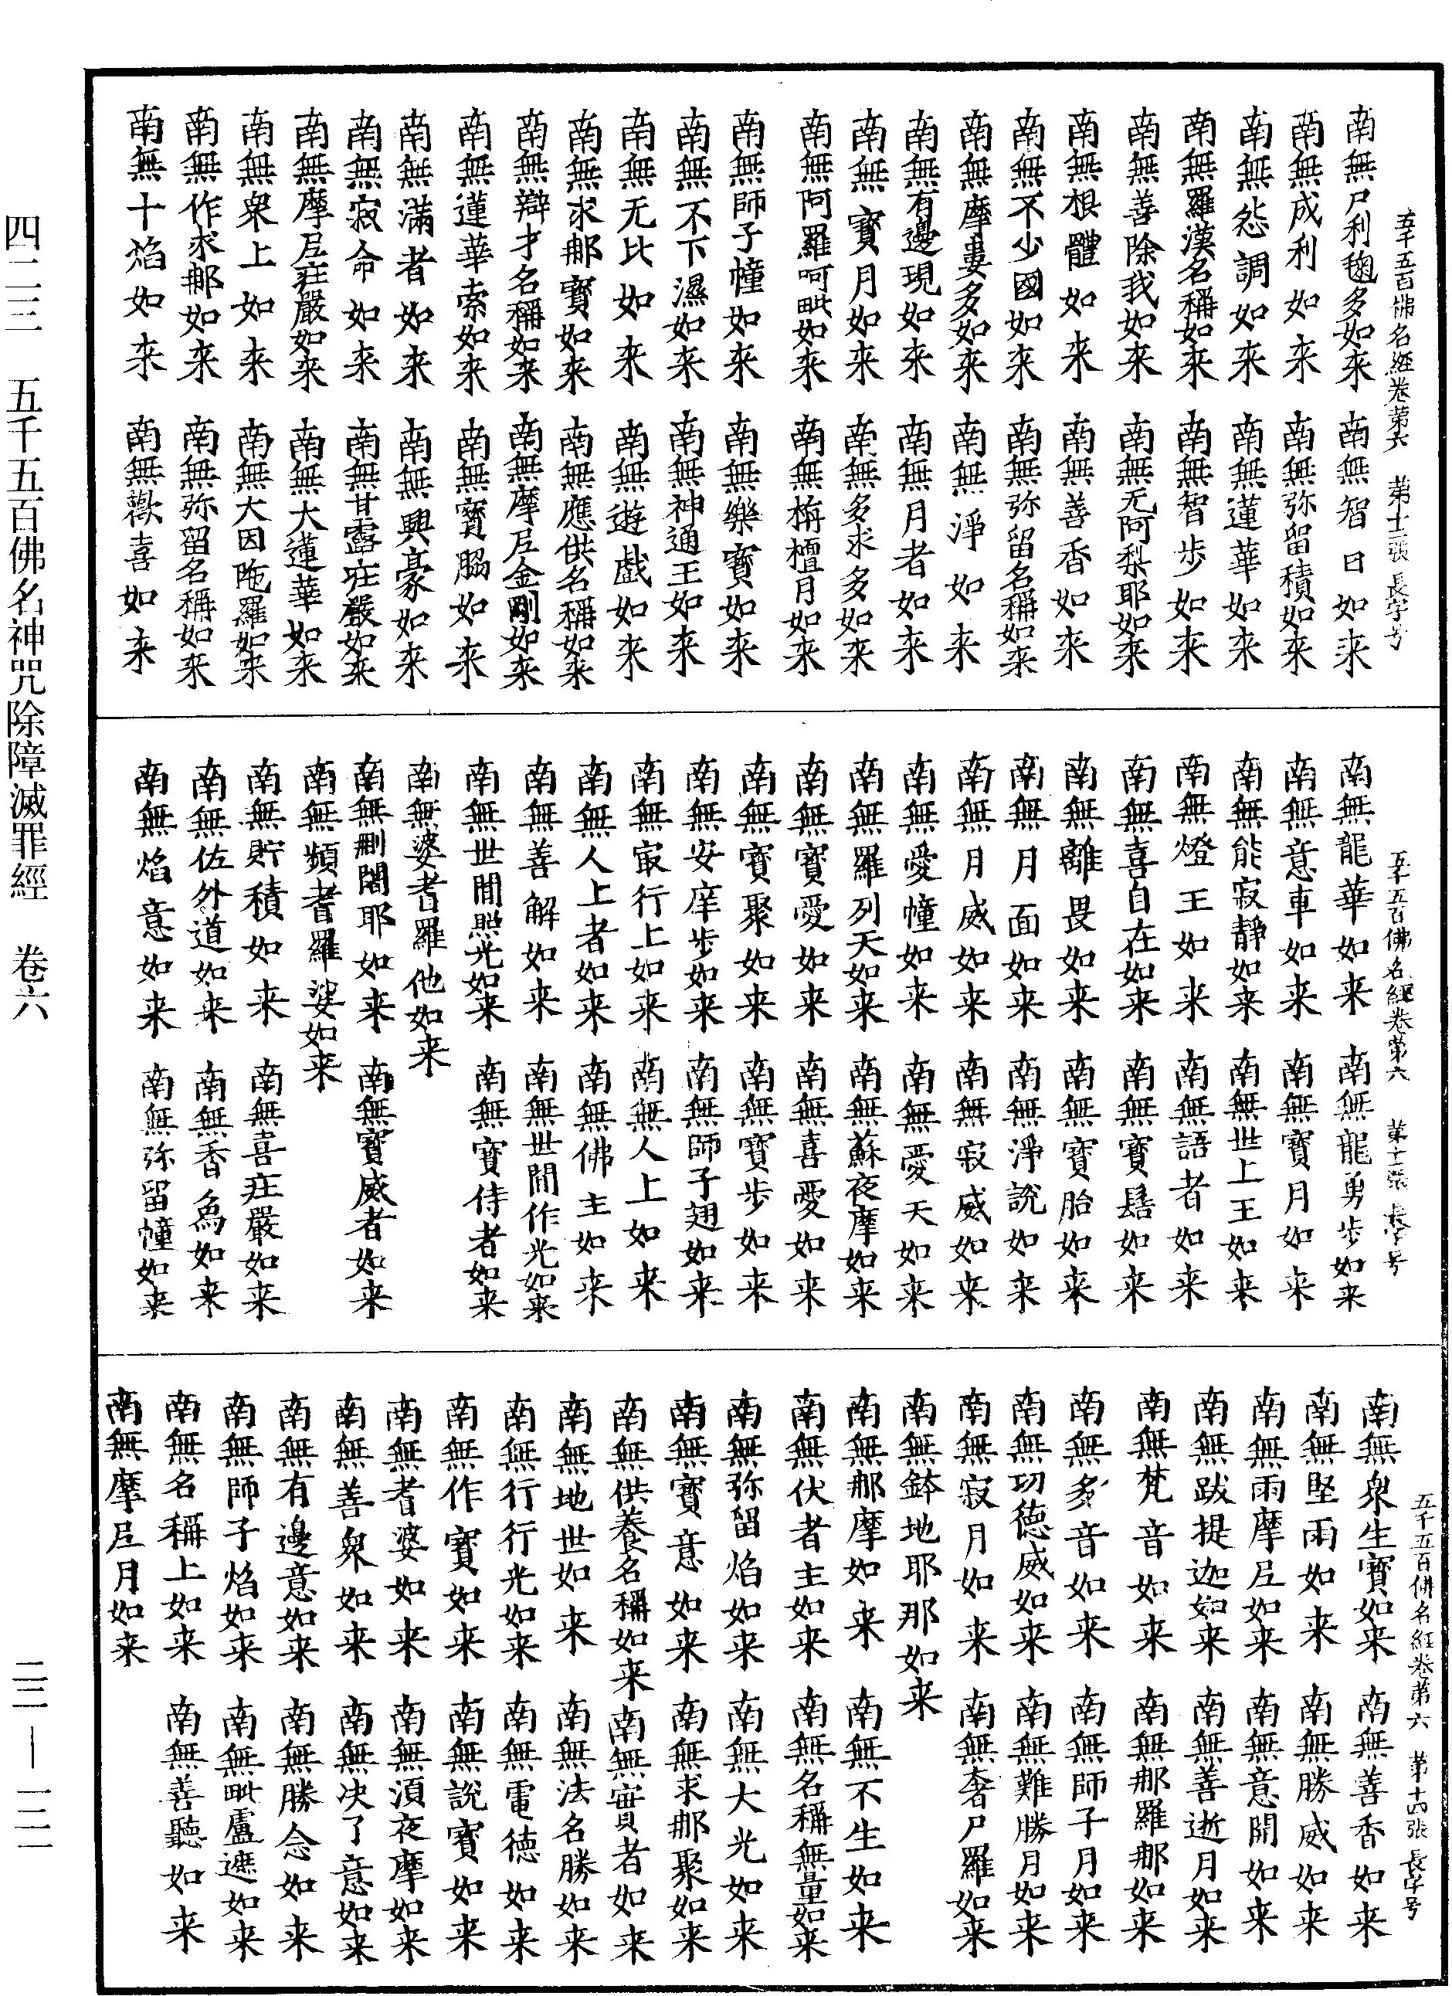 五千五百佛名經卷第六 第十二張 長字号
南無尸利毱多如来 南無智日如来
南無成利如来 南無弥留積如来
南無怨調如来 南無蓮華如来
南無羅漢名稱如来 南無智步如来
南無善除我如来 南無无阿梨耶如来
南無根體如来 南無善香如来
南無不少國如来 南無弥留名稱如来
南無摩婁多如来 南無淨如来
南無有邊現如来 南無月者如来
南無寶月如来 南無多求多如来
南無阿羅呵毗如来 南無栴檀月如来
南無師子幢如来 南無樂寶如来
南無不下濕如来 南無神通王如来
南無无比如来 南無遊戲如来
南無求那寶如来 南無應供名稱如来
南無辯才名稱如来 南無摩尼金剛如来
南無蓮華索如来 南無寶腦如来
南無滿者如来 南無興豪如来
南無寂命如来 南無甘露莊嚴如来
南無摩尼莊嚴如来 南無大蓮華如来
南無衆上如来 南無大因陁羅如来
南無作求那如来 南無弥留名稱如来
南無十焰如来 南無歡喜如来
五千五百佛名經卷第六 第十三張 長字号
南無龍華如来 南無龍勇步如来
南無意車如来 南無寶月如来
南無能寂靜如来 南無世上王如来
南無燈王如来 南無語者如来
南無喜自在如来 南無寶髻如来
南無離畏如来 南無寶胎如来
南無月面如来 南無淨說如来
南無月威如来 南無寂威如来
南無愛幢如来 南無愛天如来
南無羅列天如来 南無蘇夜摩如来
南無寶愛如来 南無喜愛如来
南無寶聚如来 南無寶步如来
南無安庠步如来 南無師子翅如来
南無㝡行上如来 南無人上如来
南無人上者如来 南無佛主如来
南無善解如来 南無世間作光如来
南無世間照光如来 南無寶侍者如来
南無婆耆羅他如来
南無刪闍耶如来 南無寶威者如来
南無頻耆羅娑如来
南無貯積如来 南無喜莊嚴如来
南無佐外道如来 南無香爲如来
南無焰意如来 南無弥留幢如来
五千五百佛名經卷第六 第十四張 長字号
南無衆生寶如来 南無善香如来
南無堅雨如来 南無勝威如来
南無雨摩尼如来 南無意開如来
南無跋提迦如来 南無善逝月如来
南無梵音如来 南無那羅那如来
南無多音如来 南無師子月如来
南無㓛德威如来 南無難勝月如来
南無寂月如来 南無奢尸羅如来
南無鉢地耶那如来
南無那摩如来 南無不生如来
南無伏者主如来 南無名稱無量如来
南無弥留焰如来 南無大光如来
南無寶意如来 南無求那聚如来
南無供養名稱如来 南無實者如来
南無地世如来 南無法名勝如来
南無行行光如来 南無電德如来
南無作寶如来 南無說寶如来
南無耆婆如来 南無須夜摩如来
南無善衆如来 南無决了意如来
南無有邊意如来 南無勝念如来
南無師子焰如来 南無毗盧遮如来
南無名稱上如来 南無善聽如来
南無摩尼月如来
四二三 五千五百佛名神咒除障滅罪經 卷六 二二—一二一